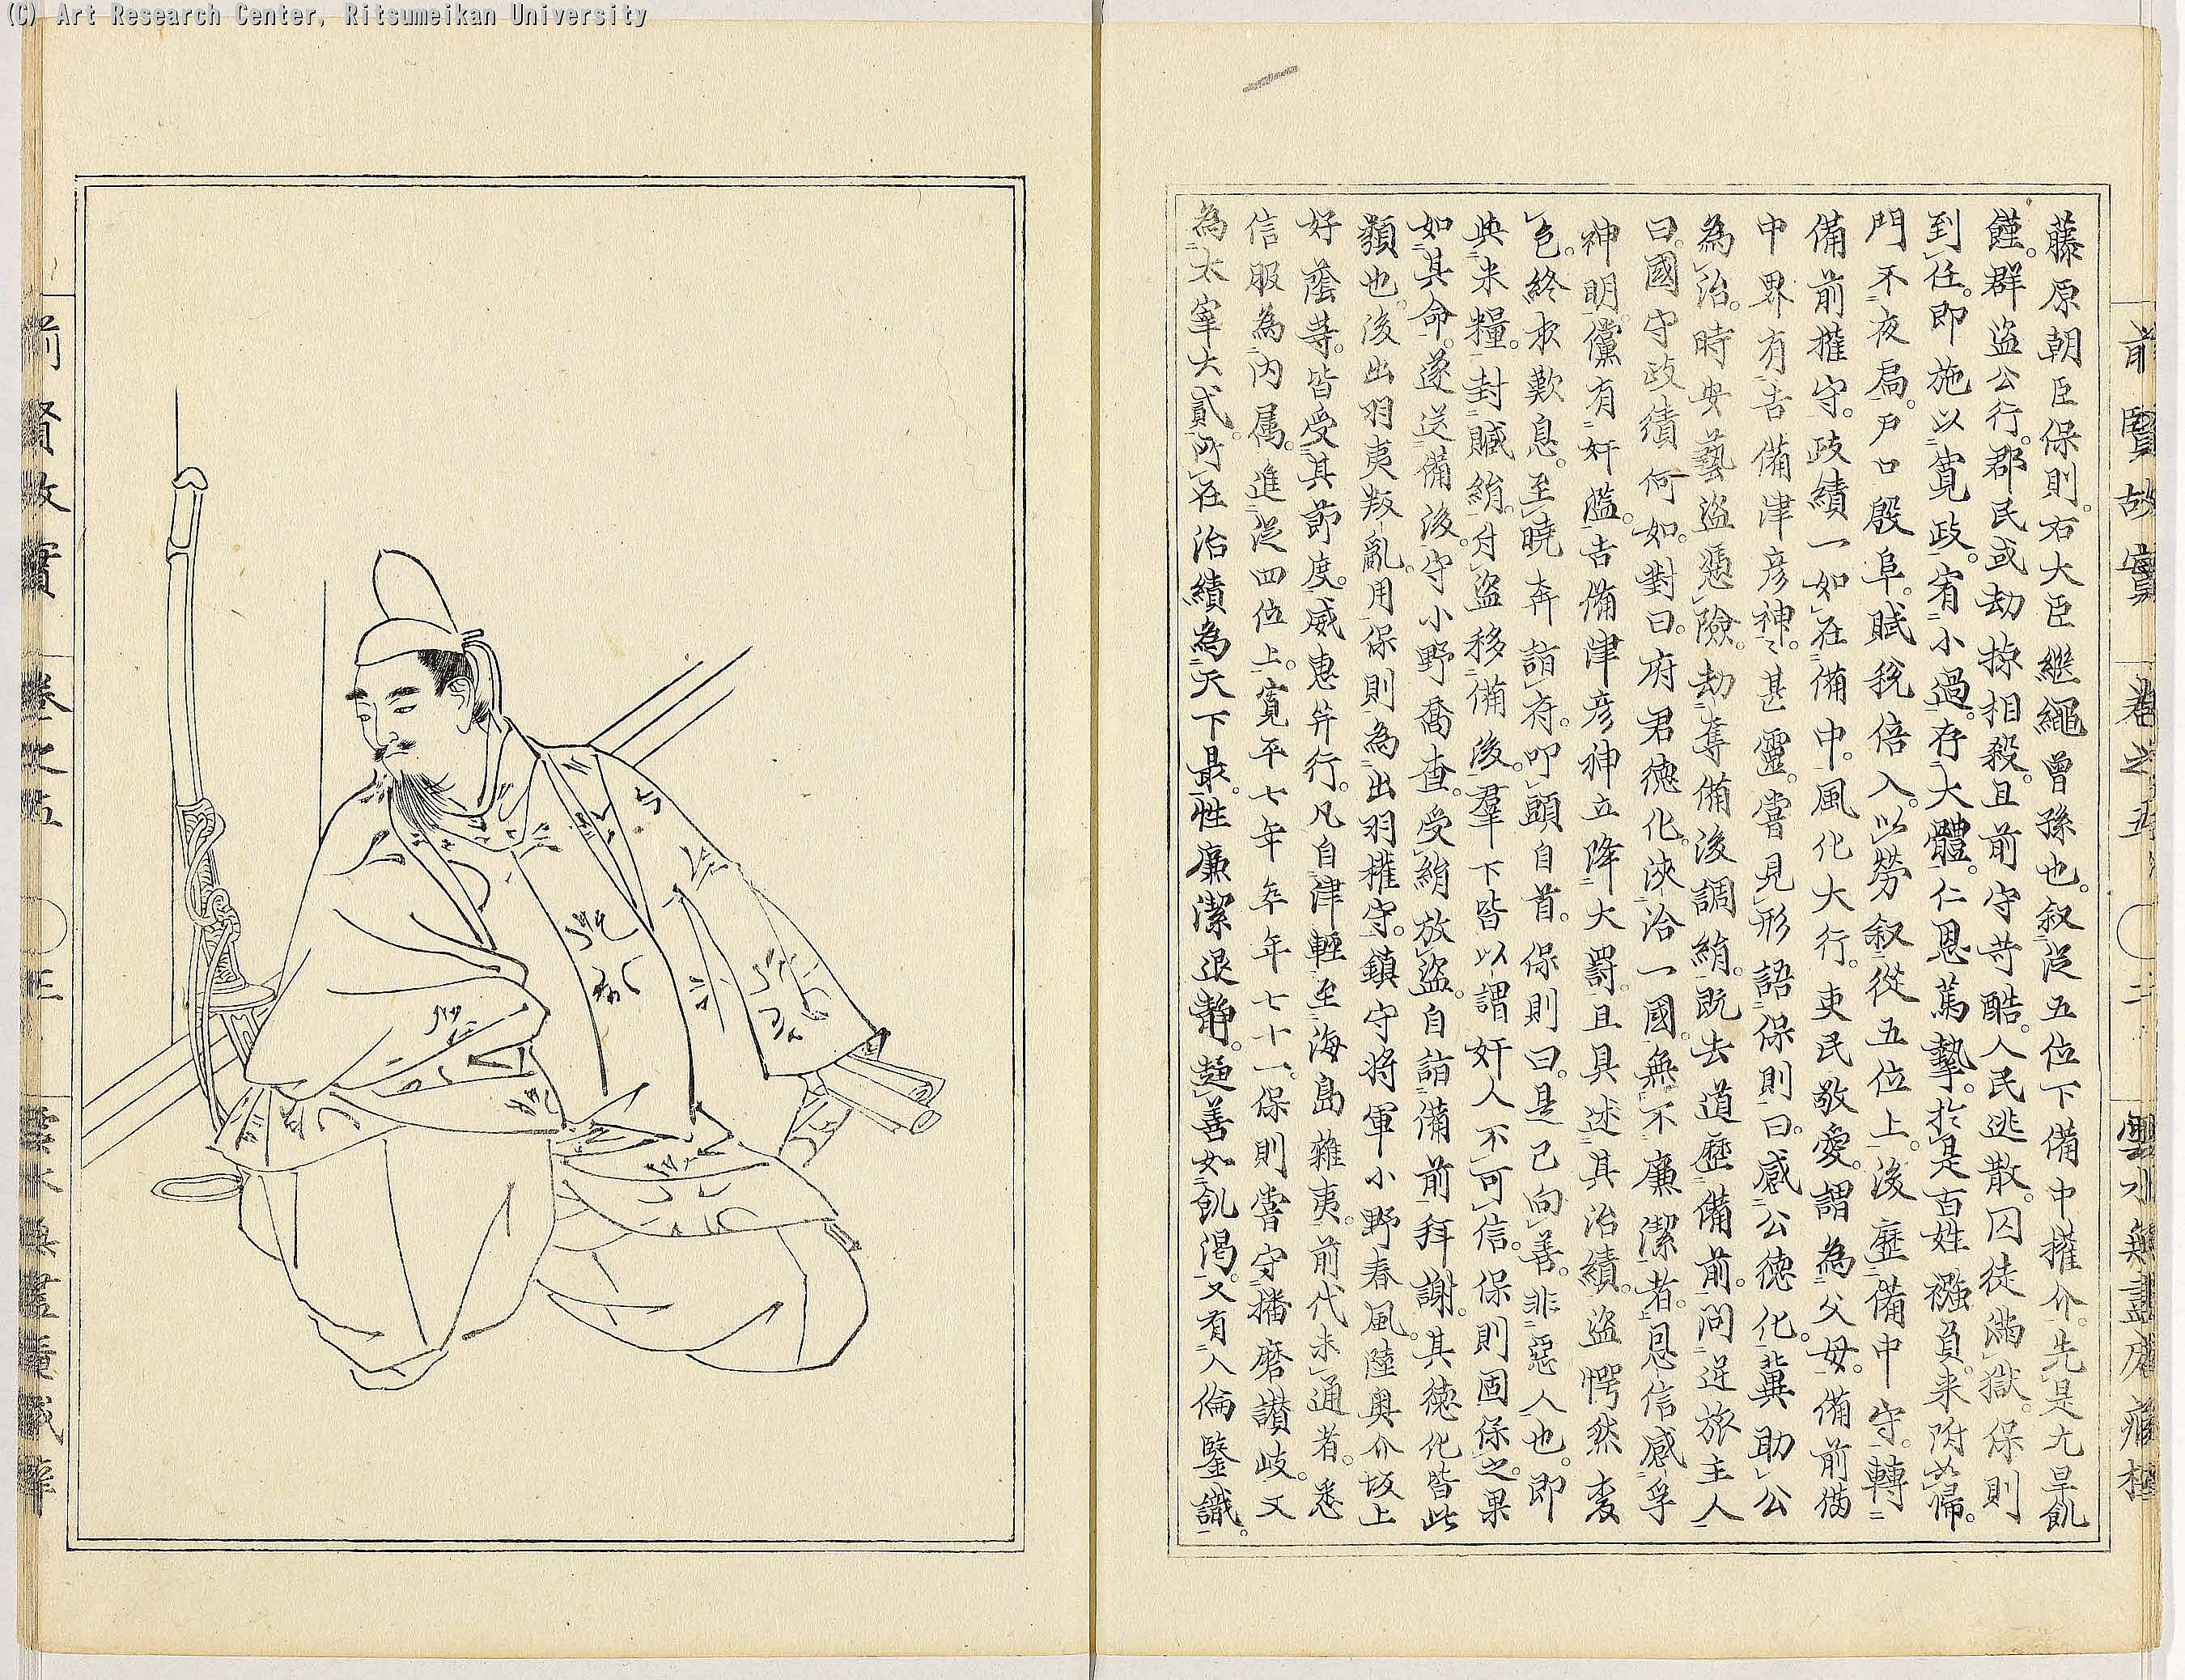 (C) Art Research Center, Ritsumeikan University
前賢故實 卷之五 ○二 雲水無盡庵藏梓
藤原朝臣保則。右大臣繼繩曾孫也。叙從五位下備中權介。先是亢旱飢
饉。群盜公行。郡民或劫掠相殺。且前守苛酷。人民逃散。囚徒滿獄。保則
到任。即施以寬政。宥小過。存大體。仁恩篤摯。於是百姓襁負。来附如歸。
門不夜扃。戸口殷阜。賦稅倍入。以勞叙從五位上。後歷備中守。轉
備前權守。政績一如在備中。風化大行。吏民敬愛。謂為父母。備前備
中界有吉備津彦神。〻甚靈。嘗見形語保則曰。感公德化。冀助公
為治。時安藝盜憑險。劫奪備後調絹。既去道歷備前。問逆旅主人
曰。國守政績何如。對曰。府君德化。浹洽一國。無不廉潔者。恩信感孚
神明。儻有奸濫。吉備津彦神立降大罰。且具述其治績。盜愕然変
色。終夜歎息。至曉奔詣府。叩頭自首。保則曰。是已向善。非惡人也。即
與米糧。封贓絹。付盜移備後。羣下皆以謂奸人不可信。保則固保之。果
如其命。遂送備後。守小野喬查。受絹放盜。自詣備前拜謝。其德化皆此
類也。後出羽夷叛亂。用保則為出羽權守。鎮守將軍小野春風。陸奥介坂上
好蔭等。皆受其節度。威惠并行。凡自津輕至海島雜夷。前代未通者。悉
信服為内屬。進從四位上。寛平七年卒年七十一。保則嘗守播磨讃岐。又
為太宰大貳。所在治績為天下最。性廉潔退静。趣善如飢渇。又有人倫鑒識。
前賢故實 卷之五 ○三 雲水無盡庵藏梓